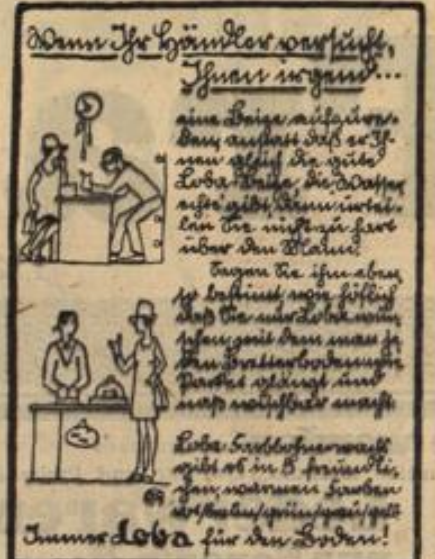 Wenn Ihr Händler versucht,
Ihnen irgend...
eine Beize aufzure-
den, anstatt daß er Ih-
nen gleich die gute
Loba-Beize, die Wasser
echte gibt, dann urtei-
len Sie nicht zu hart
über den Mann!
Sagen Sie ihm eben
so bestimmt wie höflich
daß Sie nur Loba wün-
schen, mit dem man je
den Bretterboden wie
Parket glänzt und
naß wischbar macht.
Loba Farbbohnerwachs
gibt es in 5 freundli-
chen, warmen Farben
Immer Loba für den Boden!